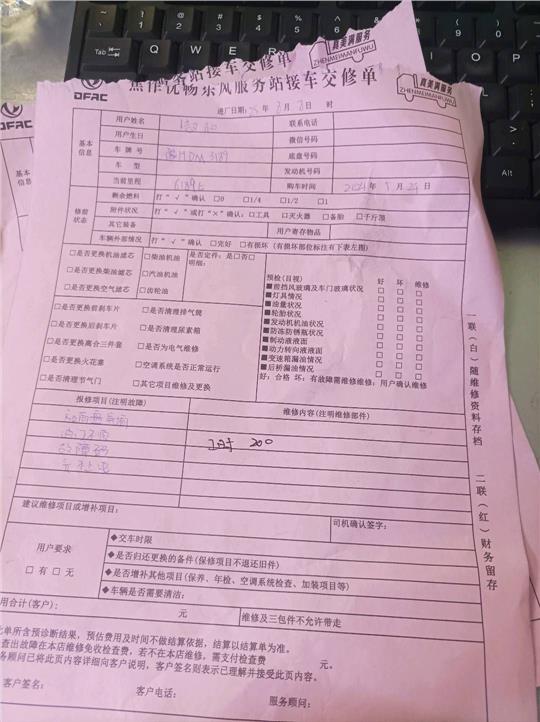 服务站接车交修单
DFAC
焦作优畅东风服务站接车交修单
真美满服务
ZHENMEIMANFUWU
进厂日期: 年 月 日 时
基本信息
用户姓名
联系电话
用户生日
微信号码
车牌号 豫HDM3189
底盘号码
车 型
发动机号码
当前里程
购车时间 年 月 日
修前状态
剩余燃料 打“√”确认 □0 □1/4 □1/2 □1
附件状况 打“√”或打“×”确认:□工具 □灭火器 □备胎 □千斤顶
其它装备
用户寄存物品
车辆外部情况 打“√”确认 □完好 □有损坏(有损坏部位标注有下表左图)
□是否更换机油滤芯 □柴油机油 是否定件:是□否□
□是否更换柴油滤芯 □汽油机油 明细:
□是否更换空气滤芯 □齿轮油
□是否更换前刹车片 □是否清理排气镜
□是否更换后刹车片 □是否清理尿素箱
□是否更换离合三件套 □是否为电气维修
□是否更换火花塞 □空调系统是否正常运行
□是否清理节气门 □其它项目维修及更换
预检(目视) 好 坏 维修
■前挡风玻璃及车门玻璃状况 □ □ □
■灯具情况 □ □ □
■油量状况 □ □ □
■轮胎状况 □ □ □
■发动机机油状况 □ □ □
■防冻防锈瓶状况 □ □ □
■制动液液面 □ □ □
■动力转向液液面 □ □ □
■变速箱漏油情况 □ □ □
■后桥漏油情况 □ □ □
好:合格 坏:有故障需维修维修:用户确认维修
报修项目(注明故障)
维修内容(注明维修部件)
故障码
200
建议维修项目或增补项目:
司机确认签字:
用户要求
□有□无
◆交车时限
◆是否归还更换的备件(保修项目不退还旧件)
◆是否增补其他项目(保养、年检、空调系统检查、加装项目等)
◆车辆是否需要清洁:
用合计(客户): 元 维修及三包件不允许带走
此单所含预诊断结果,预估费用及时间不做结算依据,结算以结算单为准。
查出故障在本店维修免收检查费,若不在本店维修,需支付检查费 元。
务顾问已将此页内容详细向客户说明,客户签名则表示已理解并接受此页内容。
客户签名: 客户电话: 服务顾问:
一联(白)随维修资料存档
二联(红)财务留存